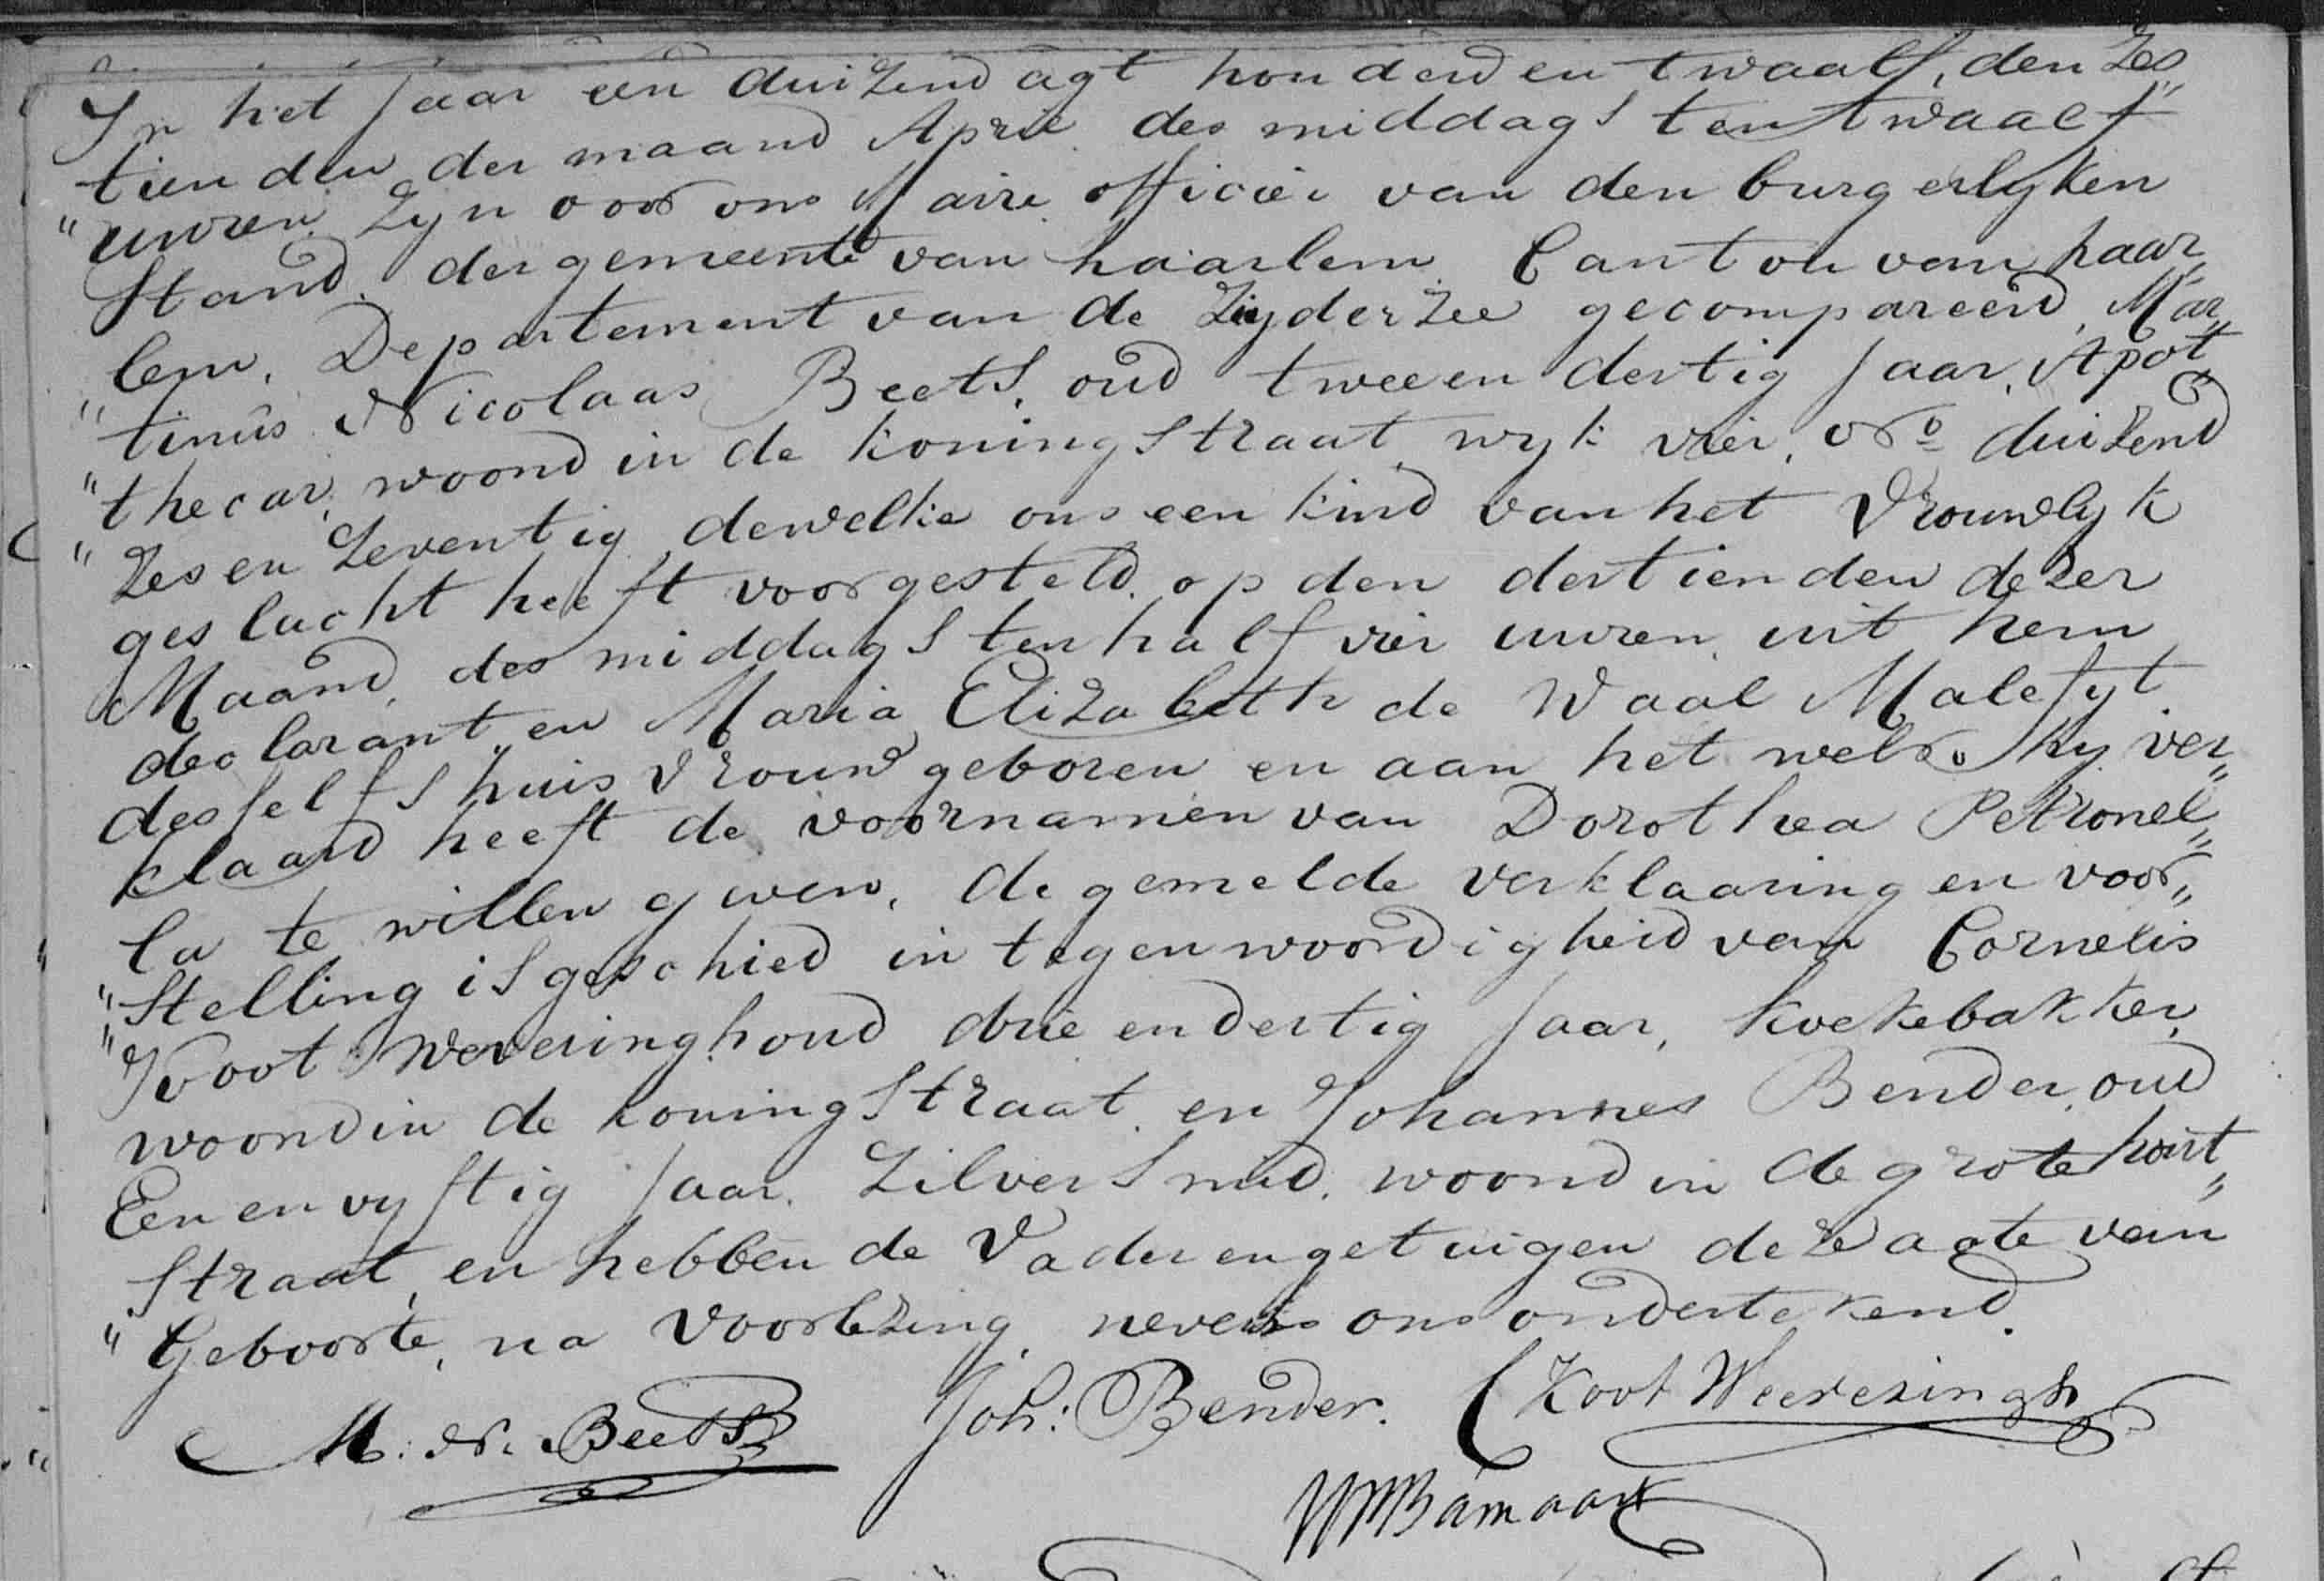 In het Jaar een duizend agt honderd en twaalf, den Zes„
tienden der maand April des middags ten twaalf
„uuren zyn voor ons Maire officier van den burgerlyken
Stand der gemeente van haarlem Canton van haar„
„lem, Departement van de Zuyderzee gecompareerd, Mar„
„tinus Nicolaas Beets, oud twee en dertig Jaar, Apot„
„thecar, woond in de koningstraat, wyk vier, No duizend
„Zes en Zeventig, dewelke ons een kind van het Vrouwlyk
geslacht heeft voorgesteld. op den dertienden dezer
Maand, des middags ten half vier uuren uit hem
declarant en Maria Elizabeth de Waal Malefyt
desselfs huisvrouw geboren en aan het welke hy ver„
klaard heeft de voornamen van Dorothea Petronel„
la te willen geven, de gemelde verklaaring en voor„
„Stelling is geschied in tegenwoordigheid van Cornelis
„Koot Weveringh oud drie en dertig Jaar, koekebakker,
woond in de koningstraat en Johannes Bender, oud
Een en vyftig Jaar. Zilversmid, woond in de grote hout„
Straat, en hebben de Vader en getuigen deze acte van
„Geboorte, na voorlezing nevens ons ondertekend.
M: N. Beets Joh: Bender. C Koot Weeveringh